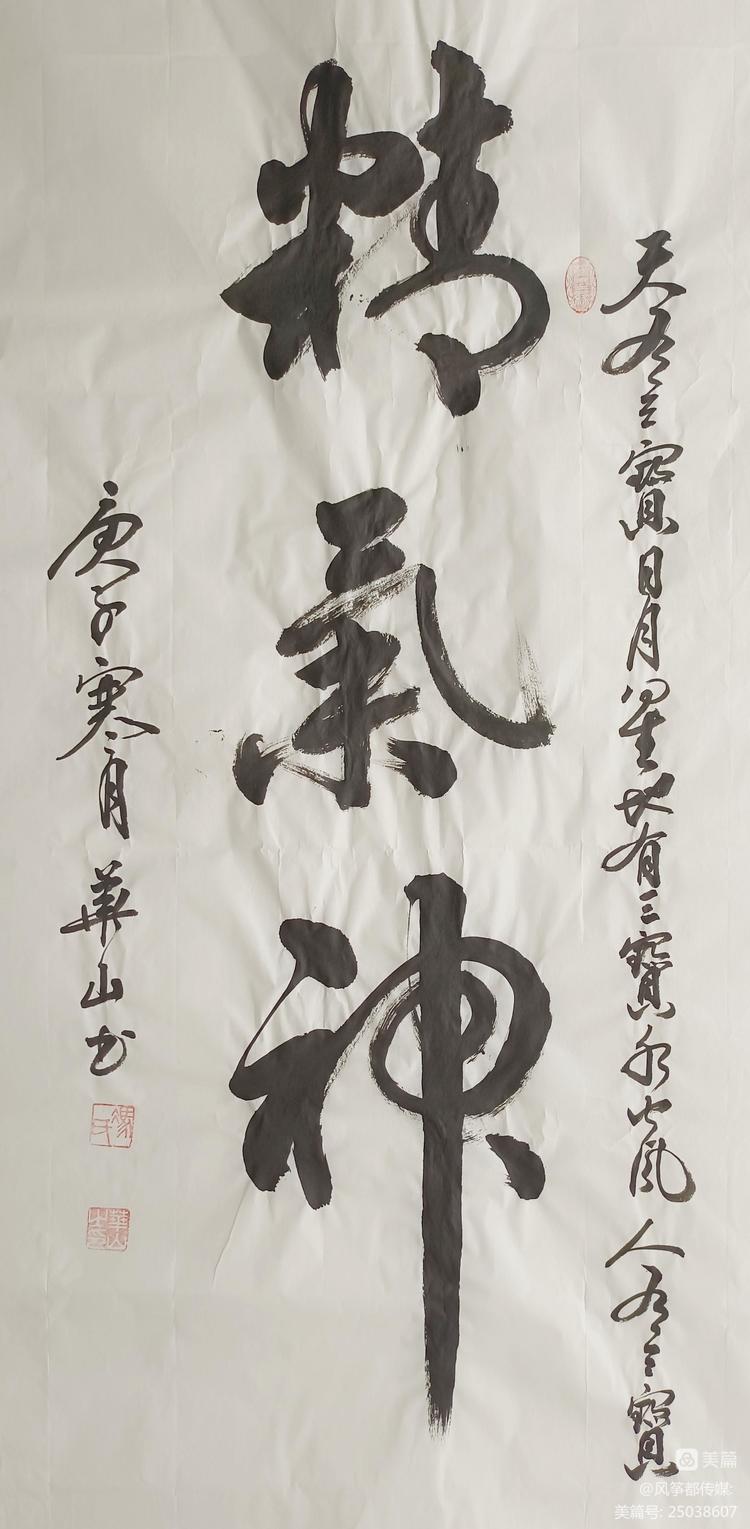 天有三寶日月星地有三寶水火風人有三寶
精氣神
庚子寒月華山書
美篇
@风筝都传媒:
美篇号: 25038607